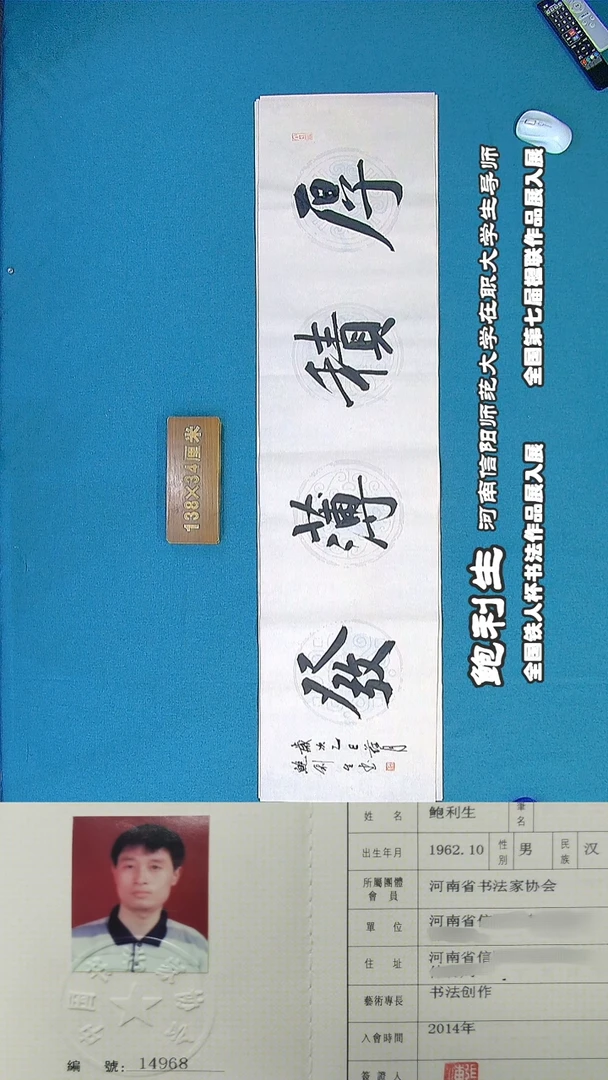 厚積薄發
歲次乙巳荷月
鮑利生書
138×34厘米
鲍利生 河南信阳师范大学在职大学生导师
全国铁人杯书法作品展入展 全国第七届楹联作品展入展
編 號: 14968
姓 名 鲍利生 筆名
出生年月 1962.10 性別 男 民族 汉
所屬團體會員 河南省书法家协会
單 位 河南省信
住 址 河南省信
藝術專長 书法创作
入會時間 2014年
簽證人